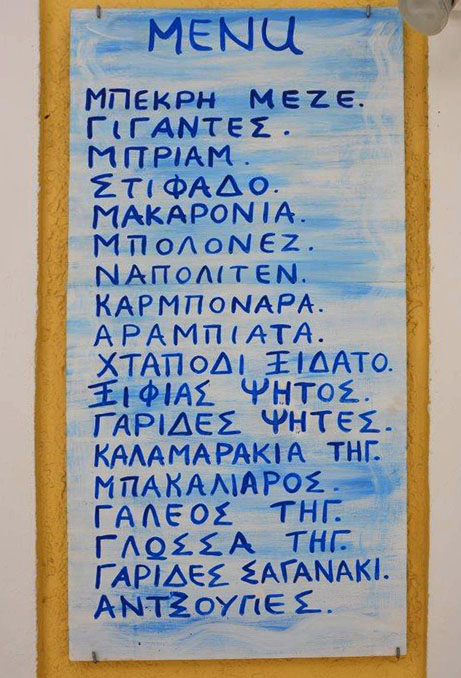 MENU
ΜΠΕΚΡΗ ΜΕΖΕ.
ΓΙΓΑΝΤΕΣ.
ΜΠΡΙΑΜ.
ΣΤΙΦΑΔΟ.
ΜΑΚΑΡΟΝΙΑ.
ΜΠΟΛΟΝΕΖ.
ΝΑΠΟΛΙΤΕΝ.
ΚΑΡΜΠΟΝΑΡΑ.
ΑΡΑΜΠΙΑΤΑ.
ΧΤΑΠΟΔΙ ΞΙΔΑΤΟ.
ΞΙΦΙΑΣ ΨΗΤΟΣ.
ΓΑΡΙΔΕΣ ΨΗΤΕΣ.
ΚΑΛΑΜΑΡΑΚΙΑ ΤΗΓ.
ΜΠΑΚΑΛΙΑΡΟΣ.
ΓΑΛΕΟΣ ΤΗΓ.
ΓΛΩΣΣΑ ΤΗΓ.
ΓΑΡΙΔΕΣ ΣΑΓΑΝΑΚΙ.
ΑΝΤΖΟΥΓΙΕΣ.